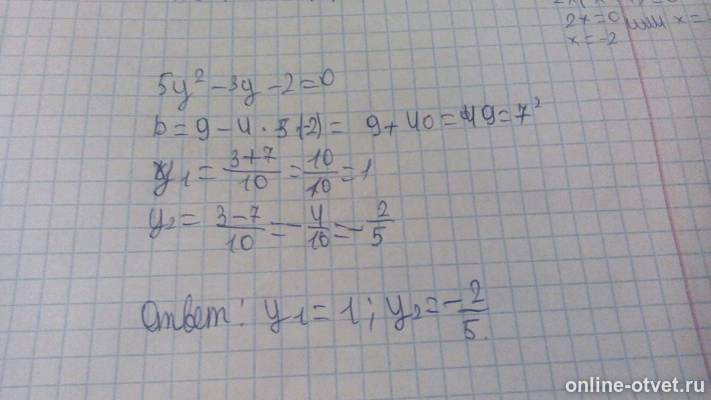 2x=0 или x=
x=-2
5y² - 3y - 2 = 0
D = 9 - 4 · 5 · (-2) = 9 + 40 = 49 = 7²
y₁ = (3+7)/10 = 10/10 = 1
y₂ = (3-7)/10 = -4/10 = -2/5
Ответ: y₁ = 1; y₂ = -2/5.
online-otvet.ru